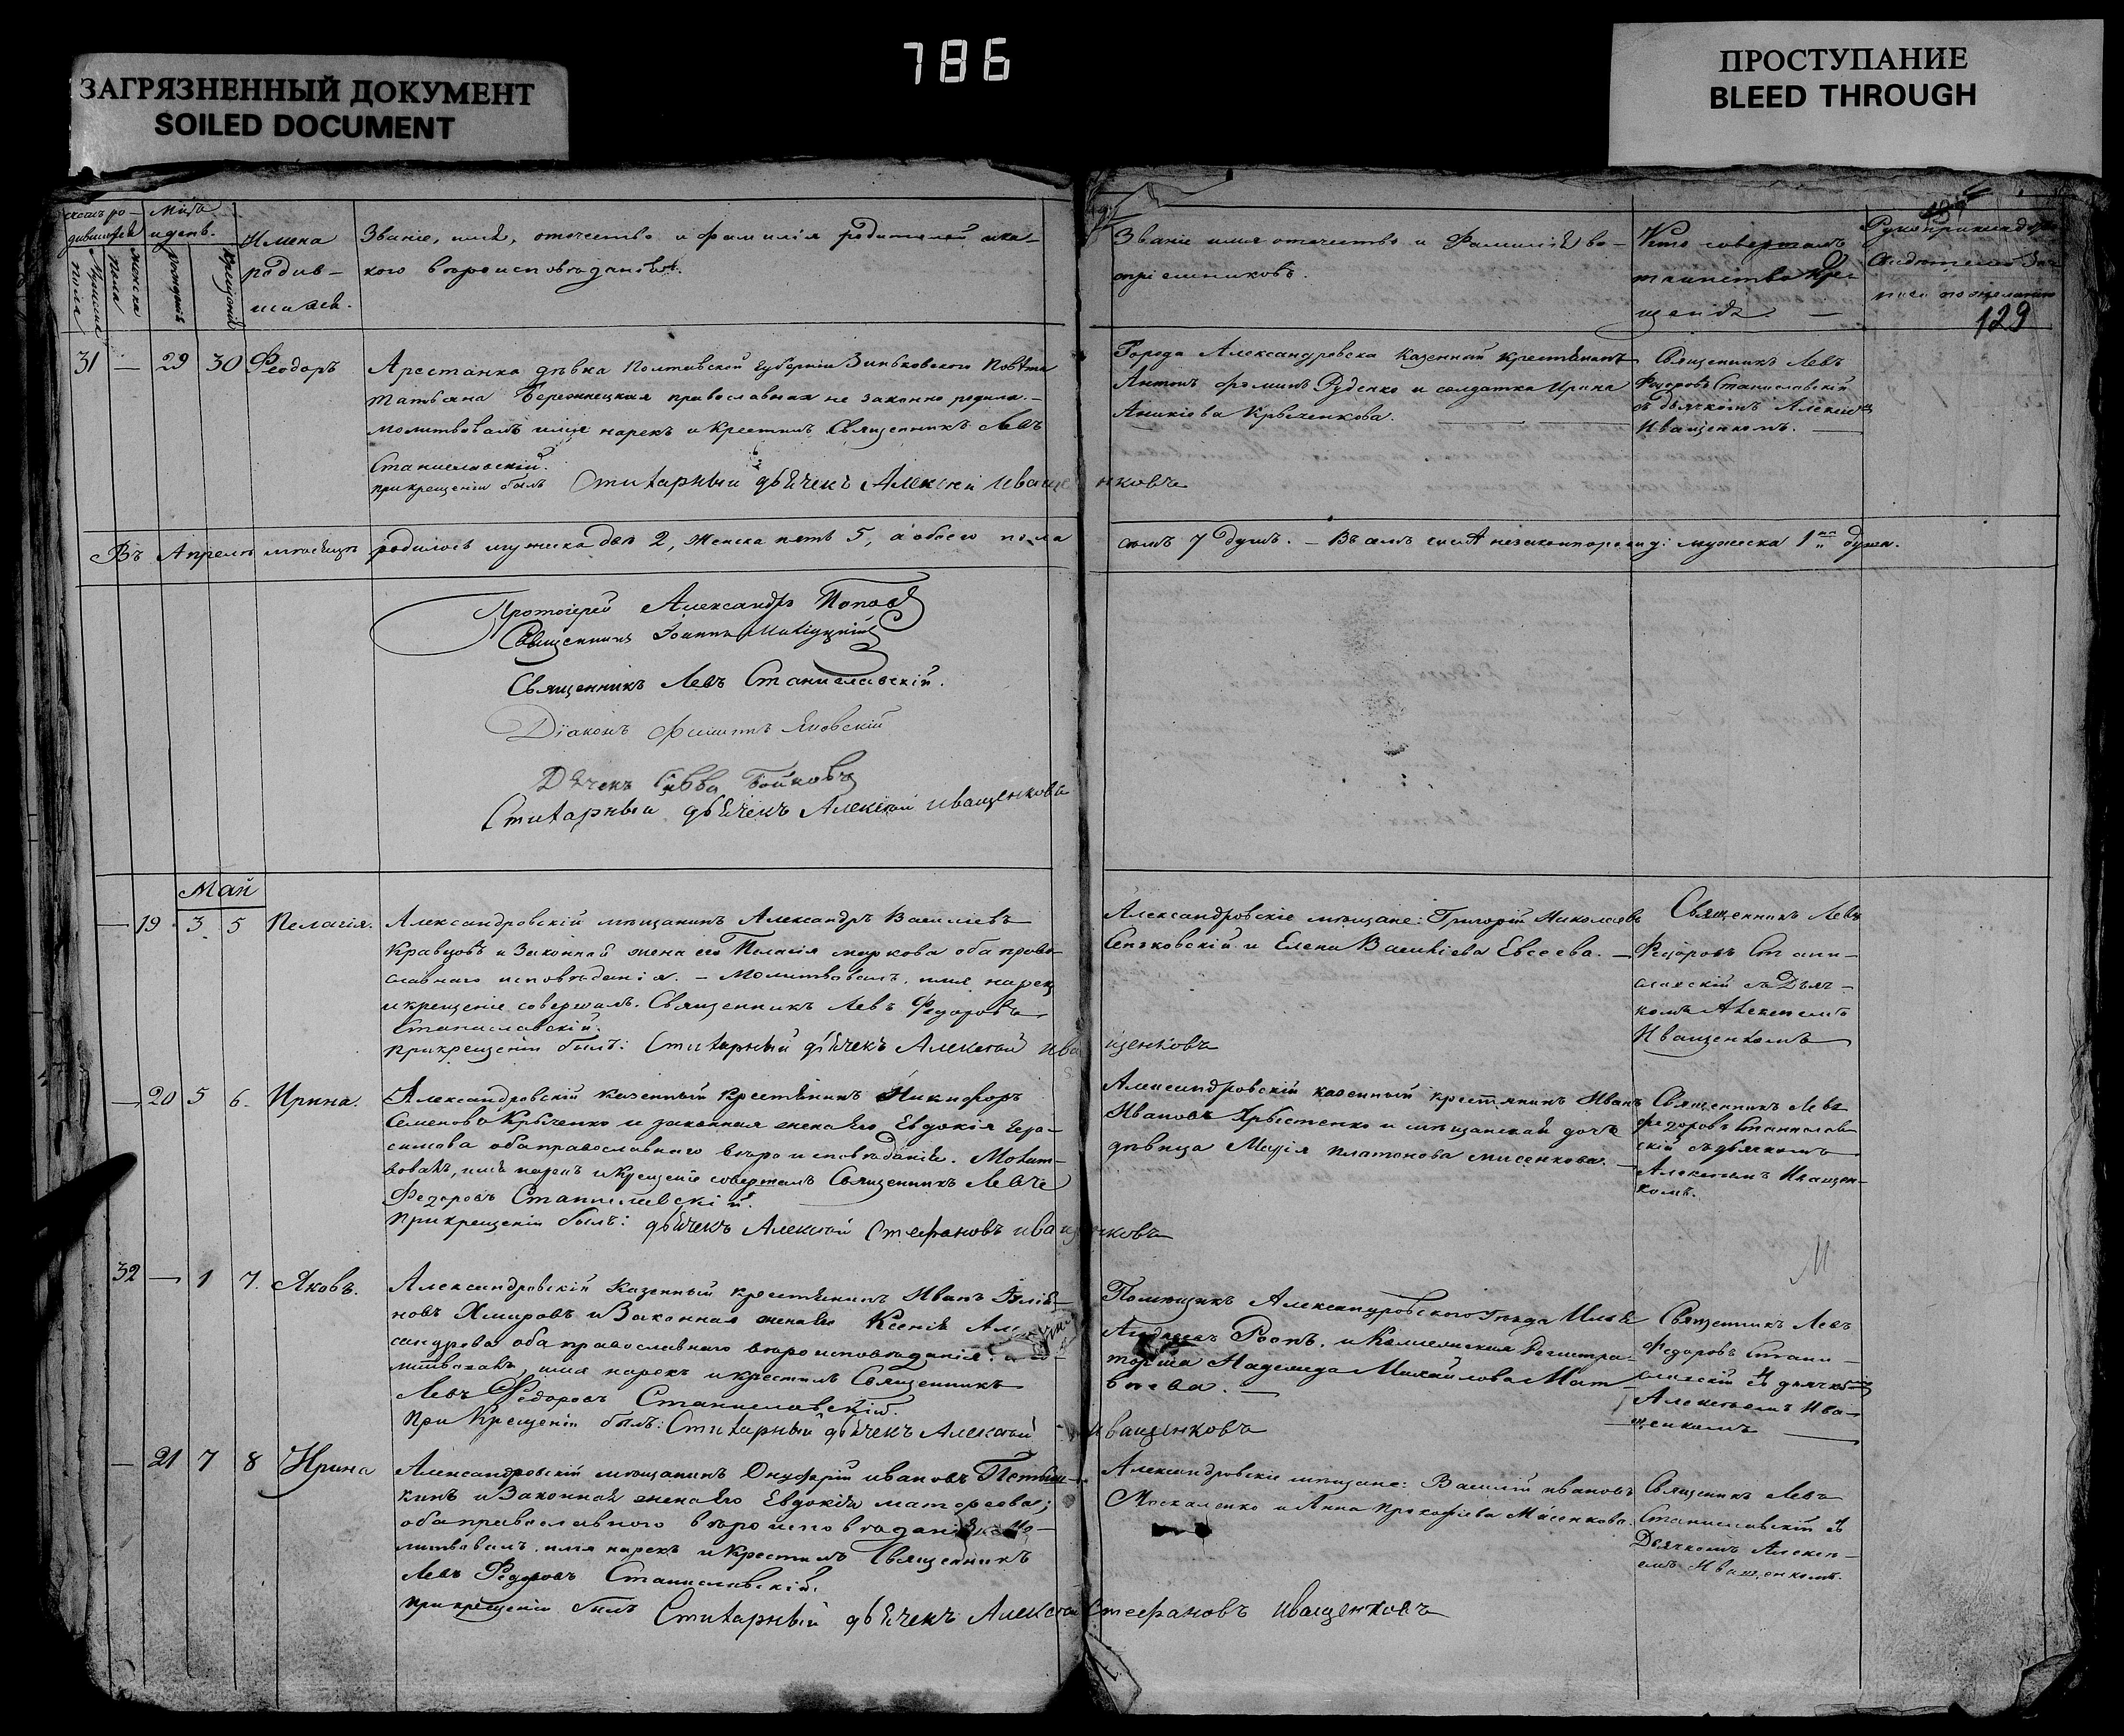 786
ЗАГРЯЗНЕННЫЙ ДОКУМЕНТ
SOILED DOCUMENT
ПРОСТУПАНИЕ
BLEED THROUGH
129
Имена
родив-
шихся.
Званіе, имя, отечество и фамилія родителей и ка-
кого вѣроисповѣданія.
Званіе имя отечество и Фамилія во-
спріемниковъ.
Кто совершалъ
таинство Кре-
щенія
31 — 29 30 Феодоръ
Арестанка дѣвка Полтавской Губерніи Зинковского Повѣта
Татьяна Бережнецкая православная не законно родила.—
молитвовалъ имя нарекъ и крестилъ Священникъ Левъ
Станиславскій.
при крещеніи былъ Стихарный дьячекъ Алексѣй Иващенковъ
Города Александровска Казенный крестьянинъ
Антонъ Фоминъ Руденко и солдатка Ирина
Аникіева Крыченкова.
Священникъ Левъ
Федоровъ Станиславскій
съ дьячкомъ Алексѣемъ
Иващенкомъ.
Въ Апрелѣ мѣсяцѣ родилось мужеска два 2, женска пять 5, а обоего пола
семъ 7 душъ. — Въ томъ числѣ незаконнорожд: мужеска 1 душа.
Протоіерей Александръ Поповъ
Священникъ Іоаннъ
Священникъ Левъ Станиславскій.
Діаконъ Филиппъ Яновскій
Дячекъ Савва Бойковъ
Стихарный дьячекъ Алексѣй Иващенковъ
Май
— 19 3 5 Пелагія.
Александровскій мѣщанинъ Александръ Васильевъ
Кравцовъ и Законная жена его Пелагія маркова оба право-
славнаго исповѣданія. — Молитвовалъ, имя нарекъ
и крещеніе совершалъ. Священникъ Левъ Федоровъ
Станиславскій.
при крещеніи былъ: Стихарный дьячекъ Алексѣй Иващенковъ
Александровскіе мѣщане: Григорій Николаевъ
и Елена Василіева Евсеева. —
Священникъ Левъ
Федоровъ Стани-
славскій съ Дьяч-
комъ Алексеемъ
Иващенкомъ
— 20 5 6. Ирина.
Александровскій казенный крестьянинъ Никифоръ
Семеновъ Крыченко и законная жена Его Евдокія Гера-
симова оба православнаго вѣроисповѣданія. Молит-
вовалъ, имя нарекъ и крещеніе совершалъ Священникъ Левъ
Федоровъ Станиславскій.
при крещеніи былъ: дьячекъ Алексѣй Стефановъ Иващенковъ
Александровскій казенный крестьянинъ Иванъ
Ивановъ Хрыстенко и мѣщанская дочь
дѣвица Марія платонова мисенкова. —
Священникъ Левъ
Федоровъ Станислав-
скій съ дьячкомъ
Алексѣемъ Иващен-
комъ.
32 — 1 7. Яковъ.
Александровскій Казенный крестьянинъ Иванъ
новъ Хмаровъ и Законная жена Его Ксенія Алек-
сандрова оба православнаго вѣроисповѣданія. Мо-
литвовалъ, имя нарекъ и крестилъ Священникъ
Левъ Федоровъ Станиславскій.
При Крещеніи былъ: Стихарный дьячекъ Алексѣй Иващенковъ
Помѣщикъ Александровского Уѣзда Илья
Андреевъ Роопъ, и Коллежская Регистра-
торша Надежда Михайлова Мат-
вѣева. —
Священникъ Левъ
Федоровъ Стани-
славскій съ дьячкомъ
Алексѣемъ Ива-
щенкомъ
— 21 7 8 Ирина
Александровскій мѣщанинъ Онуфрій ивановъ
кинъ и Законная жена Его Евдокія матфеева;
оба православного вѣроисповѣданія. Мо-
литвовалъ, имя нарекъ и Крестилъ Священникъ
Левъ Федоровъ Станиславскій.
при крещеніи былъ Стихарный дьячекъ Алексѣй Стефановъ Иващенковъ
Александровскіе мѣщане: Василій ивановъ
Москаленко и Анна Прокофіева Мисенкова.
Священникъ Левъ
Станиславскій съ
Дьячкомъ Алексѣ-
емъ Иващенкомъ.